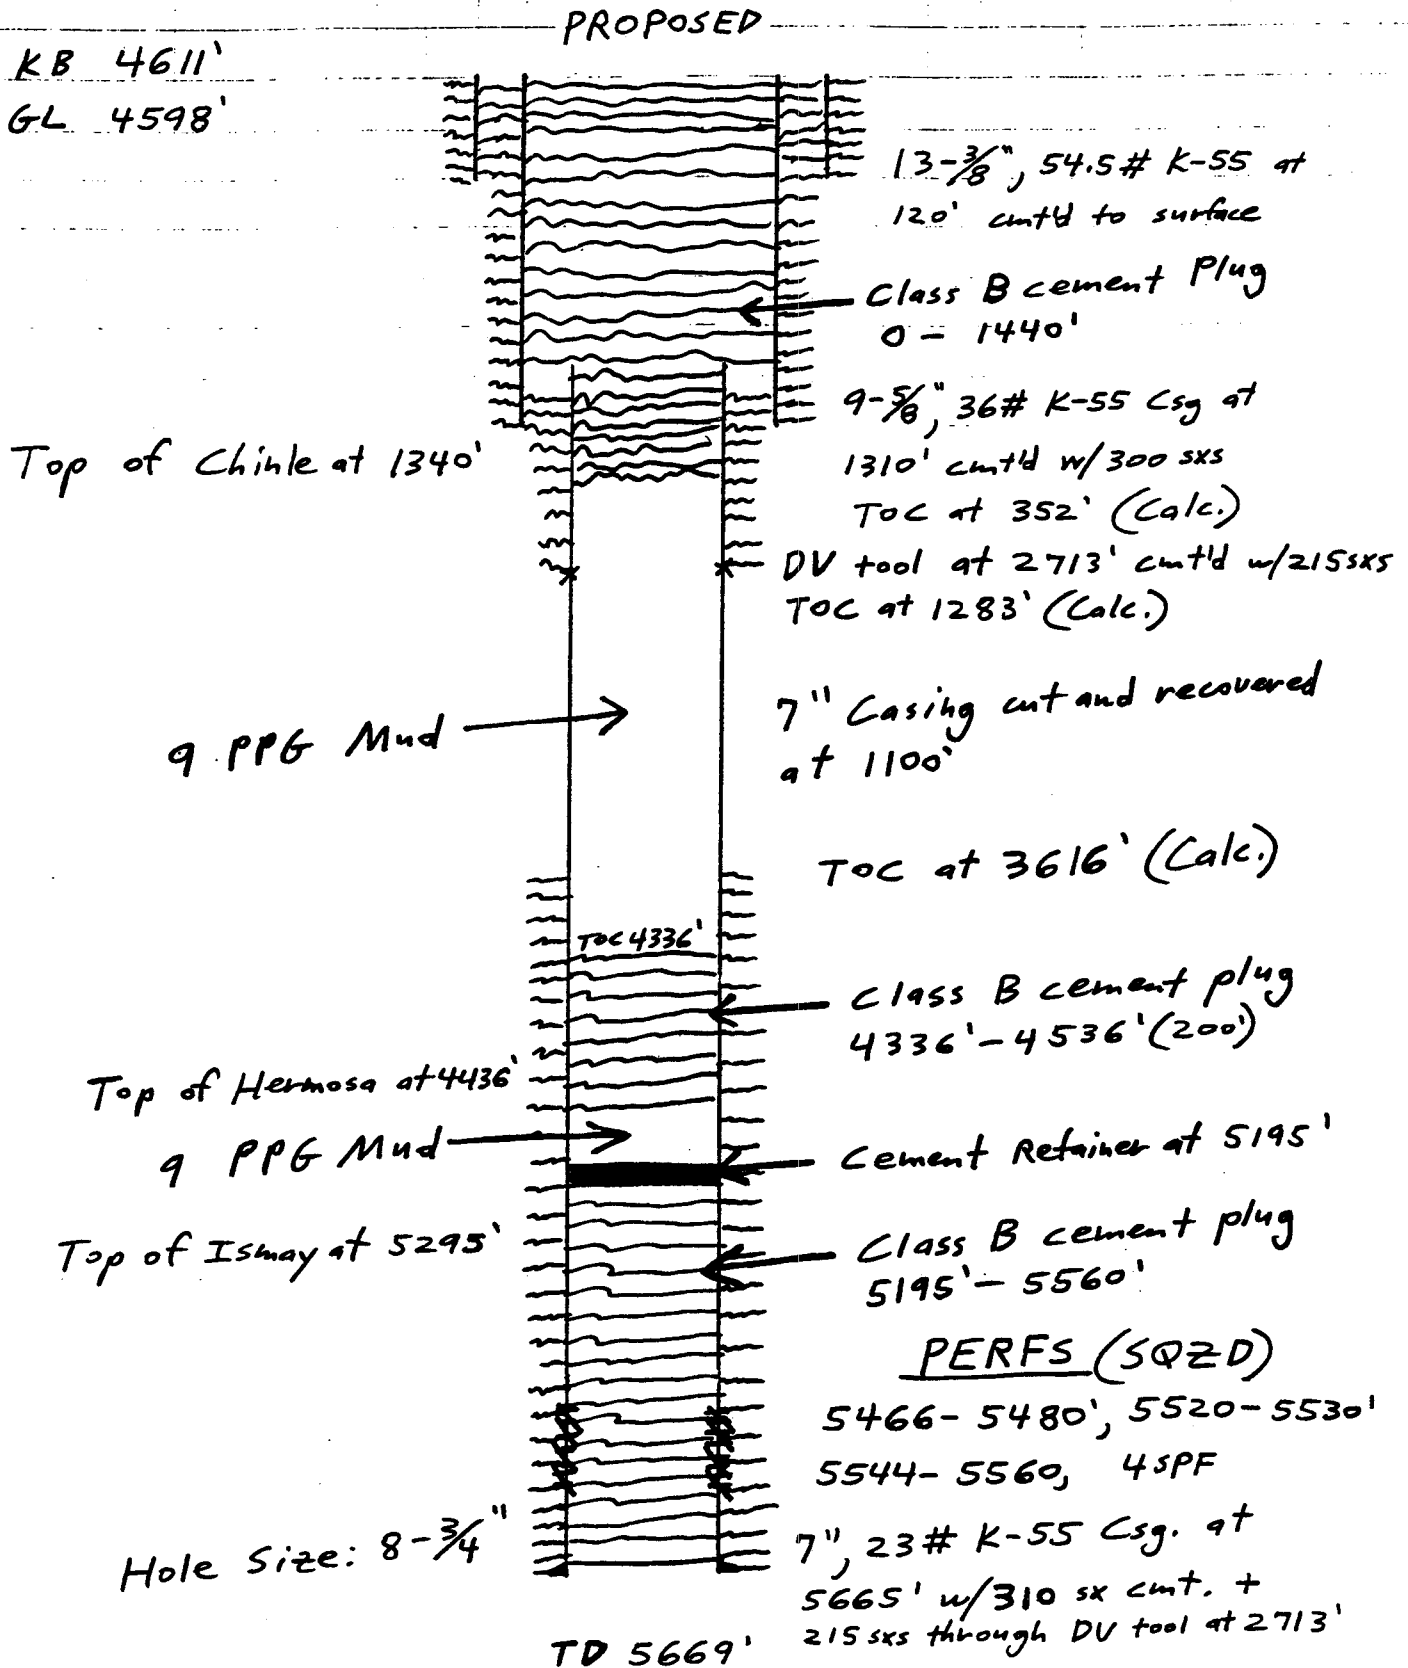 PROPOSED
KB 4611'
GL 4598'
13-3/8", 54.5# K-55 at
120' cmt'd to surface
Class B cement Plug
0 - 1440'
9-5/8", 36# K-55 Csg at
1310' cmt'd w/300 sxs
TOC at 352' (Calc.)
Top of Chinle at 1340'
DV tool at 2713' cmt'd w/215sxs
TOC at 1283' (Calc.)
7" Casing cut and recovered
at 1100'
9 PPG Mud
TOC at 3616' (Calc.)
TOC 4336'
Class B cement plug
4336'-4536' (200')
Top of Hermosa at 4436'
9 PPG Mud
Cement Retainer at 5195'
Top of Ismay at 5295'
Class B cement plug
5195'- 5560'
PERFS (SQZD)
5466-5480', 5520-5530'
5544-5560, 4 SPF
Hole Size: 8-3/4"
7", 23# K-55 Csg. at
5665' w/310 sx cmt. +
215 sxs through DV tool at 2713'
TD 5669'